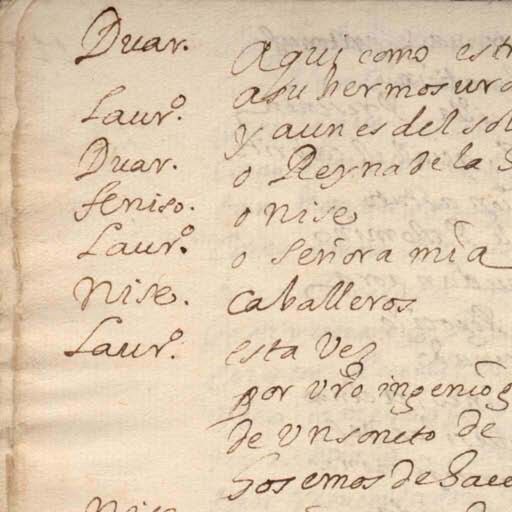 Duar. Aqui como estr
asu hermosura
Laur.º y aun es del sol
Duar. o Reyna de la
feniso. o nise
Laur.º o Señora mía
Nise. caballeros
Laur.º esta vez
por vrō ingenio
de un soneto de
Nise.